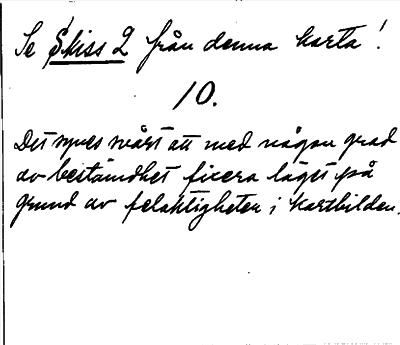 Se Skiss 2 från denna karta!
10.
Det synes svårt att med någon grad
av bestämdhet fixera läget på
grund av felaktigheter i kartbilden.